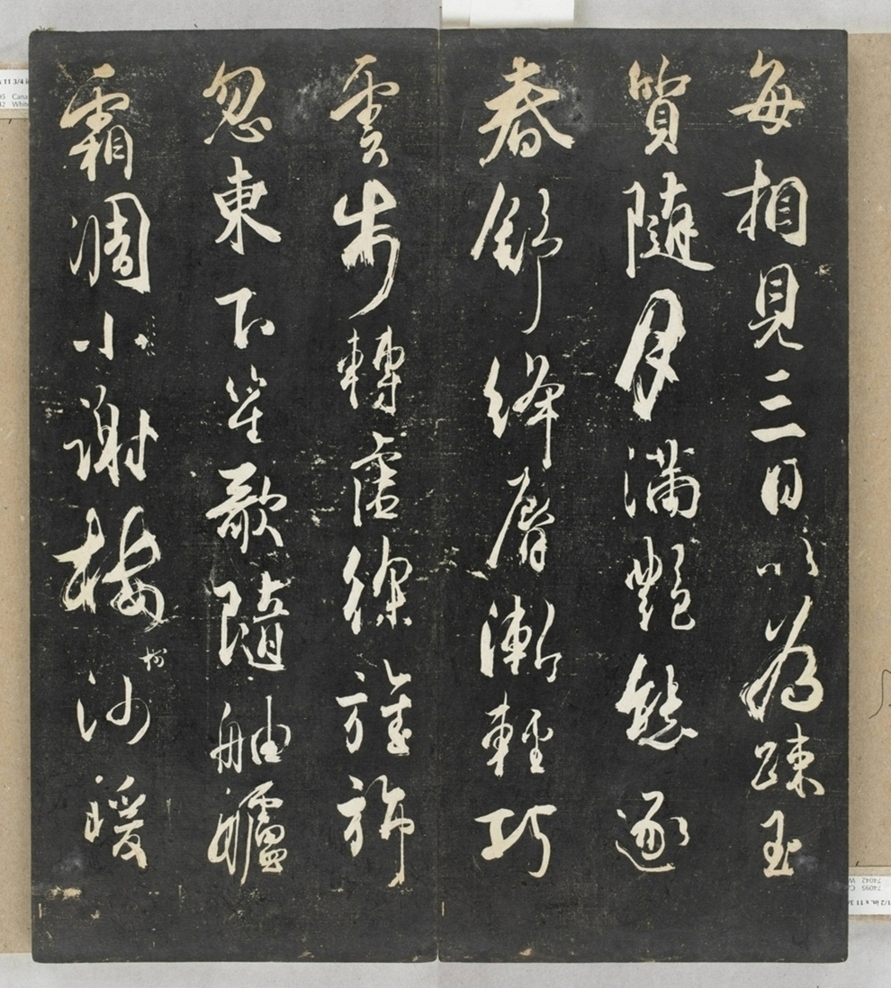 每相見三日以為疎玉
質隨月滿艷態逐
春舒絳脣漸輕巧
雲步轉虛徐旌旆
忽東下笙歌隨舳艫
霜凋小謝樓樹沙暖